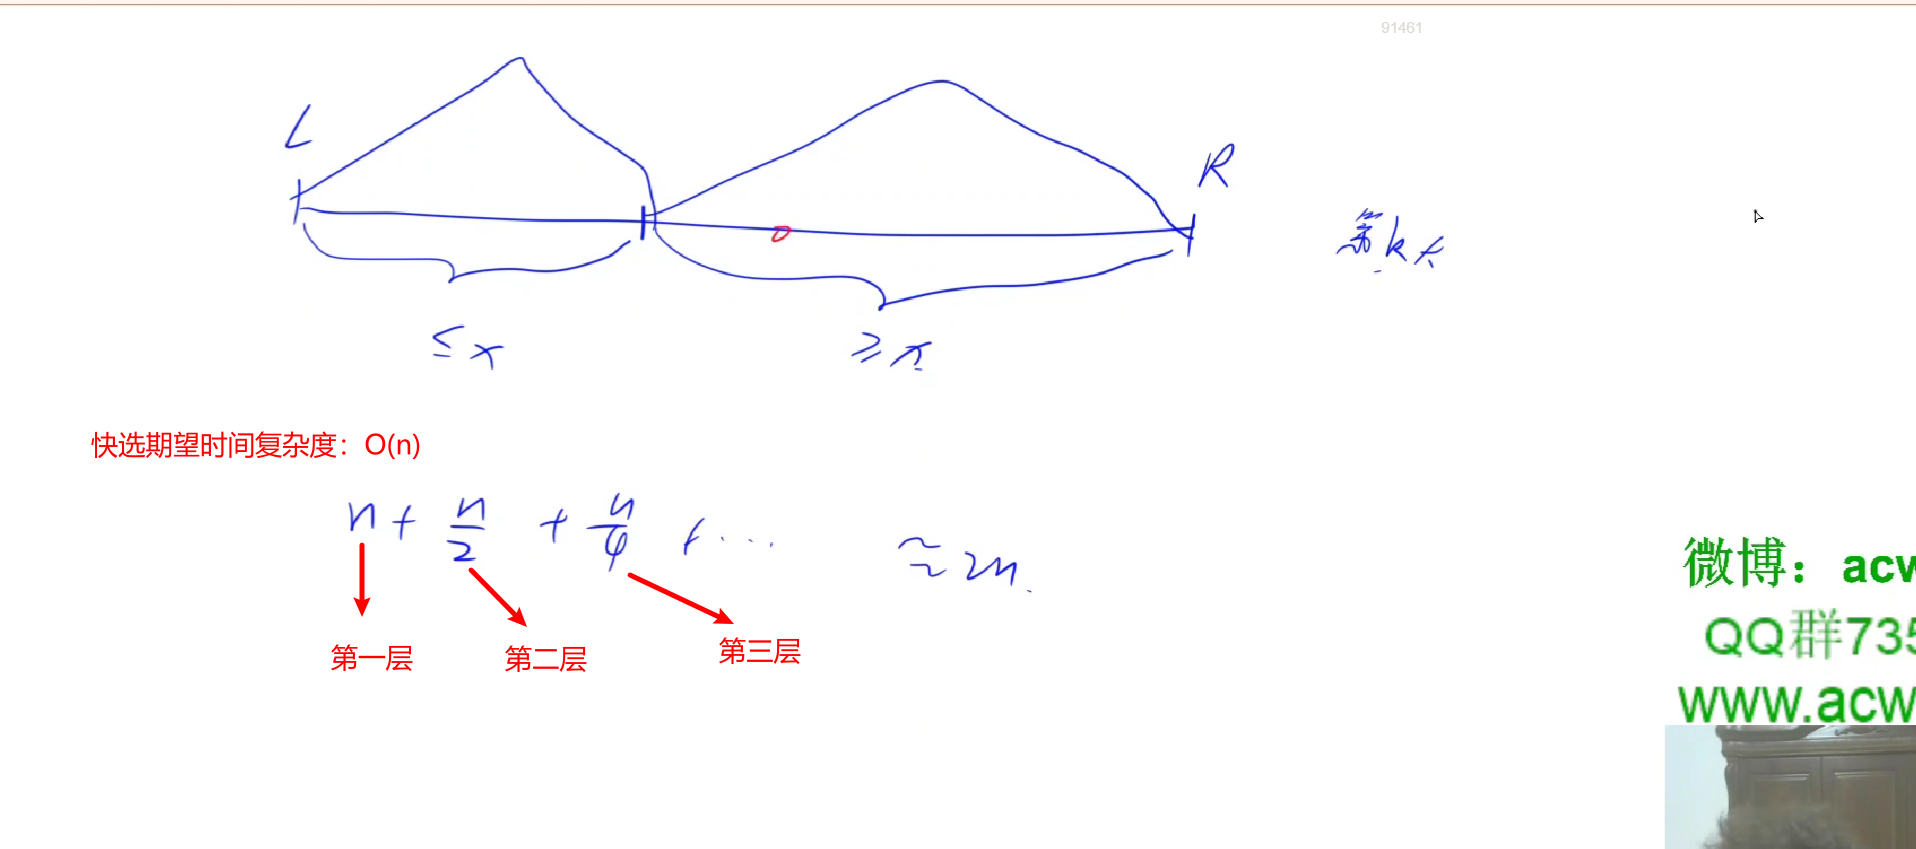 91461
L
R
第k大
≤x
≥x
快选期望时间复杂度：O(n)
n + n/2 + n/4 + ... ≈ 2n.
第一层
第二层
第三层
微博：acw
QQ群735
www.acw